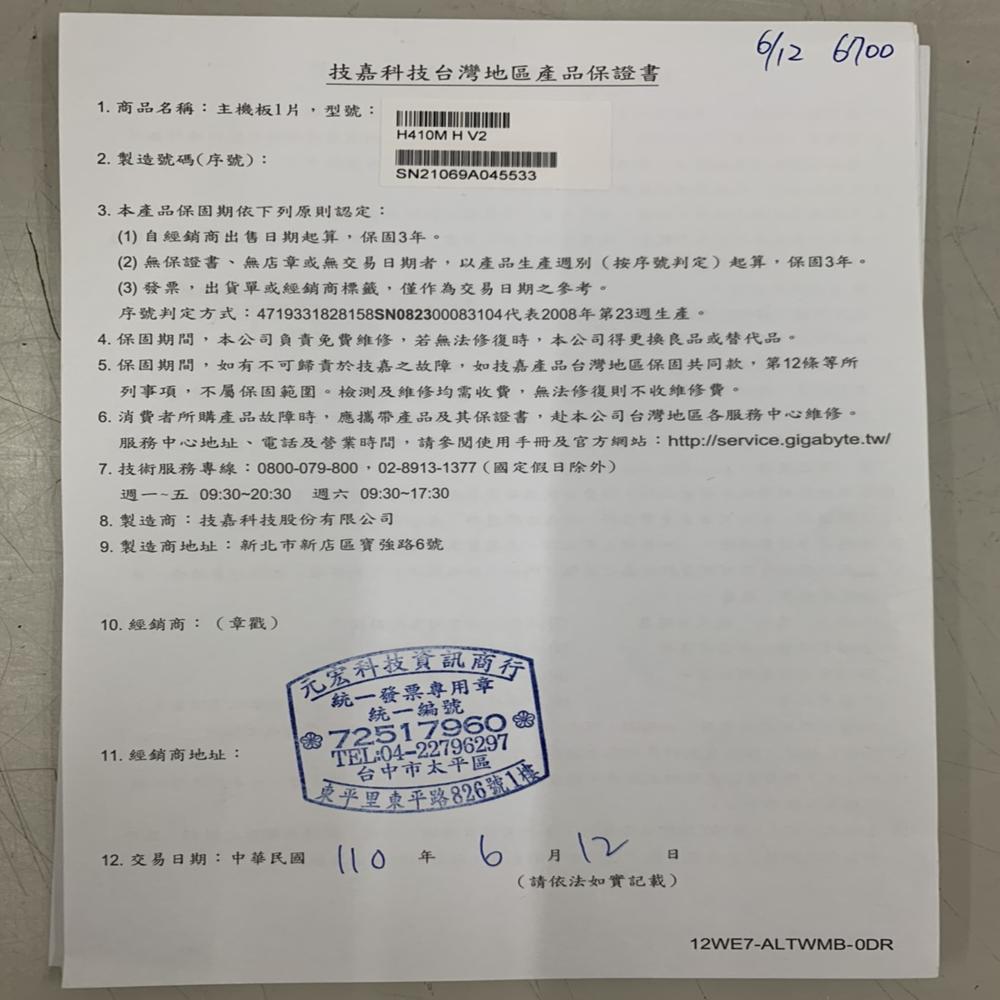 6/12 6700
技嘉科技台灣地區產品保證書
1. 商品名稱：主機板1片，型號：
H410M H V2
2. 製造號碼(序號)：
SN21069A045533
3. 本產品保固期依下列原則認定：
(1) 自經銷商出售日期起算，保固3年。
(2) 無保證書、無店章或無交易日期者，以產品生產週別（按序號判定）起算，保固3年。
(3) 發票，出貨單或經銷商標籤，僅作為交易日期之參考。
序號判定方式：4719331828158SN082300083104代表2008年第23週生產。
4. 保固期間，本公司負責免費維修，若無法修復時，本公司得更換良品或替代品。
5. 保固期間，如有不可歸責於技嘉之故障，如技嘉產品台灣地區保固共同款，第12條等所
列事項，不屬保固範圍。檢測及維修均需收費，無法修復則不收維修費。
6. 消費者所購產品故障時，應攜帶產品及其保證書，赴本公司台灣地區各服務中心維修。
服務中心地址、電話及營業時間，請參閱使用手冊及官方網站：http://service.gigabyte.tw/
7. 技術服務專線：0800-079-800，02-8913-1377（國定假日除外）
週一~五 09:30~20:30 週六 09:30~17:30
8. 製造商：技嘉科技股份有限公司
9. 製造商地址：新北市新店區寶強路6號
10. 經銷商：（章戳）
元宏科技資訊商行
統一發票專用章
統一編號
72517960
TEL:04-22796297
台中市太平區
東平里東平路826號1樓
11. 經銷商地址：
12. 交易日期：中華民國 110 年 6 月 12 日
（請依法如實記載）
12WE7-ALTWMB-0DR